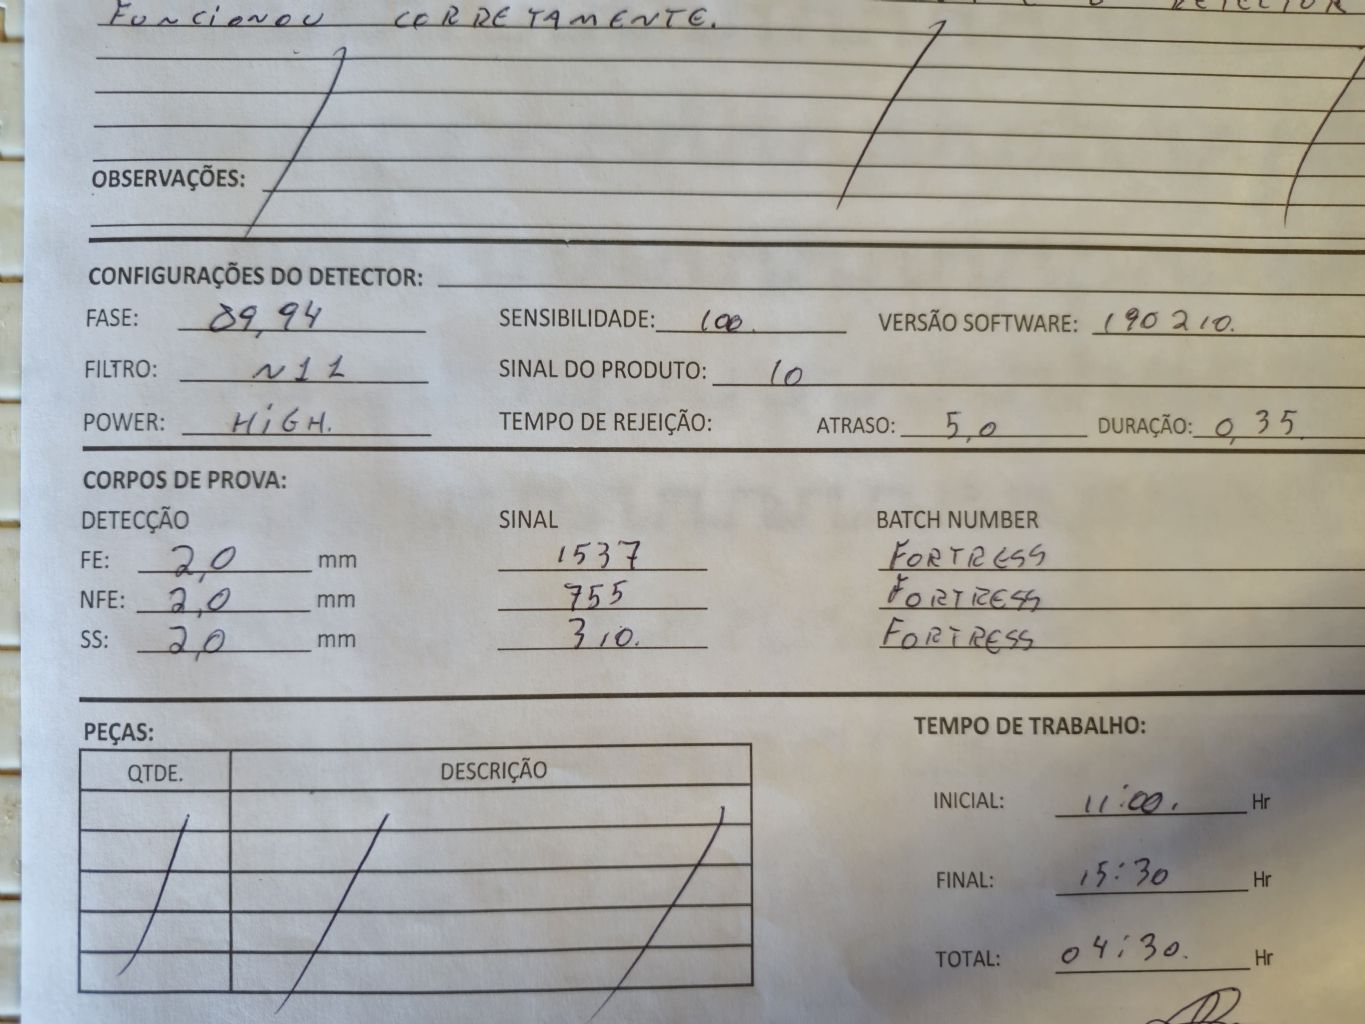 DETECTOR
FUNCIONOU CORRETAMENTE.
OBSERVAÇÕES:
CONFIGURAÇÕES DO DETECTOR:
FASE: 89,94 SENSIBILIDADE: 100. VERSÃO SOFTWARE: 190210.
FILTRO: N11 SINAL DO PRODUTO: 10
POWER: HIGH. TEMPO DE REJEIÇÃO: ATRASO: 5,0 DURAÇÃO: 0,35.
CORPOS DE PROVA:
DETECÇÃO SINAL BATCH NUMBER
FE: 2,0 mm 1537 FORTRESS
NFE: 2,0 mm 755 FORTRESS
SS: 2,0 mm 310. FORTRESS
PEÇAS: TEMPO DE TRABALHO:
QTDE. DESCRIÇÃO
INICIAL: 11:00. Hr
FINAL: 15:30 Hr
TOTAL: 04:30. Hr